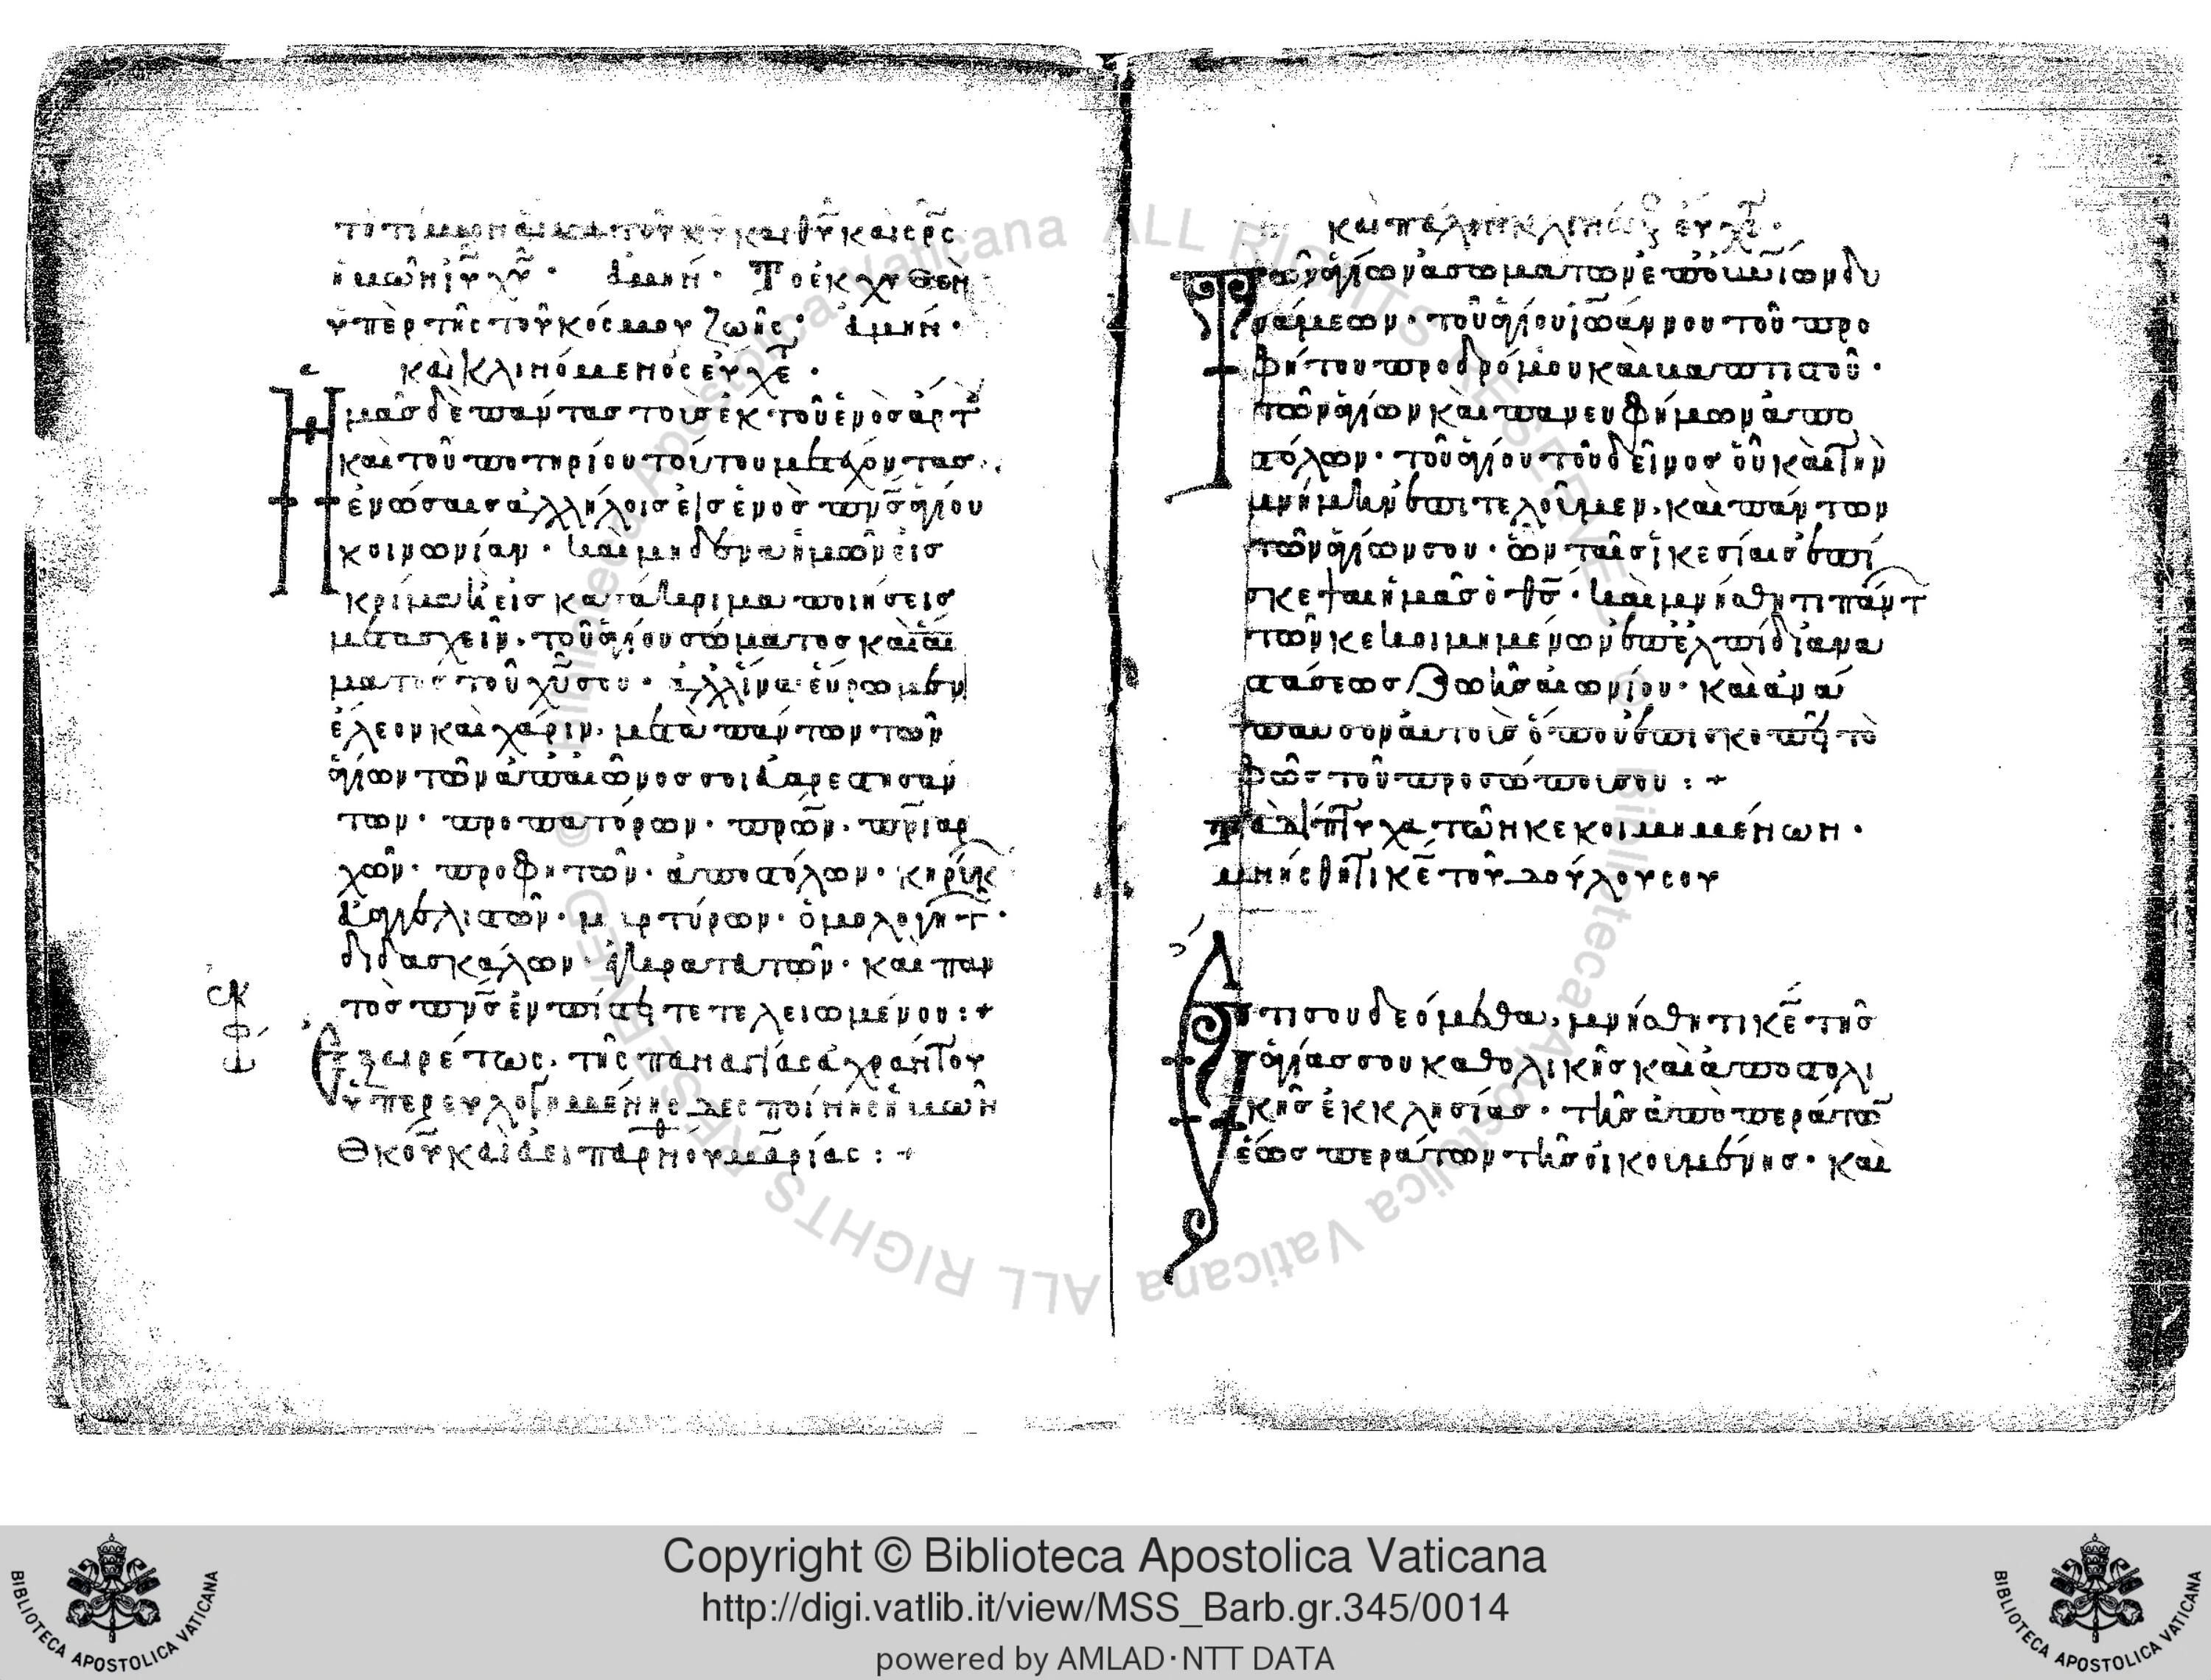 τὸ τίμιον αἷμα τοῦ κυ καὶ θυ καὶ σρς
ἡμῶν ιυ χυ · ἀμήν · Τὸ ἐκχυθὲν
ὑπὲρ τῆς τοῦ κόσμου ζωῆς · ἀμήν ·
καὶ κλινόμενος εὔχετ ·
Ημᾶς δὲ πάντας τοὺς ἐκ τοῦ ἑνὸς ἄρτ
καὶ τοῦ ποτηρίου τούτου μετέχοντας ·
ἑνώσαις ἀλλήλοις εἰς ἑνὸς πνς ἁγίου
κοινωνίαν · καὶ μηδένα ἡμῶν εἰς
κρίμα ἢ εἰς κατάκριμα ποιήσεις
μετασχεῖν · τοῦ ἁγίου σώματος καὶ αἵ
ματος τοῦ χυ σου · ἀλλ' ἵνα εὕρωμεν
ἔλεον καὶ χάριν · μετὰ πάντων τῶν
ἁγίων τῶν ἀπ' αἰῶνος σοι εὐαρεστησάν
των · προπατόρων · πρων · πριαρ
χῶν · προφητῶν · ἀποστόλων · κηρύκ
εὐαγγελιστῶν · μαρτύρων · ὁμολογητ ·
διδασκάλων · ἐγκρατευτῶν · καὶ παν
τὸς πνς ἐν πίστει τετελειωμένου : +
Ἐξαιρέτως · τῆς παναγίας ἀχράντου
ὑπερευλογημένης δεσποίνης ἡμῶν
θκου καὶ ἀειπαρθνου μαρίας : +
καὶ πάλιν κλινόμ εὔχετ ·
Τῶν ἁγίων ἀσωμάτων ἐπουνίων δυ
νάμεων · τοῦ ἁγίου ἰωάννου τοῦ προ
φήτου προδρόμου καὶ βαπτιστοῦ ·
τῶν ἁγίων καὶ πανευφήμων ἀπο
στόλων · τοῦ ἁγίου τοῦδεῖνος οὗ καὶ τὴν
μνήμην ἐπιτελοῦμεν · καὶ πάντων
τῶν ἁγίων σου · ὧν ταῖς ἱκεσίαις ἐπί
σκεψαι ἡμᾶς ὁ θς · καὶ μνήσθητι πάντ
τῶν κεκοιμημένων ἐπ' ἐλπίδι ἀνα
στάσεως ζωῆς αἰωνίου · καὶ ἀνά
παυσον αὐτοὺς ὅπου ἐπισκοπεῖ τὸ
φῶς τοῦ προσώπου σου : +
τὰ δίπτυχα τῶν κεκοιμημένων ·
μνήσθητι κε τοῦ δούλου σου
Ἔτι σου δεόμεθα, μνήσθητι κε τῆς
ἁγίας σου καθολικῆς καὶ ἀποστολι
κῆς ἐκκλησίας · τῆς ἀπὸ περάτω
ἕως περάτων τῆς οἰκουμένης · καὶ
Copyright © Biblioteca Apostolica Vaticana
http://digi.vatlib.it/view/MSS_Barb.gr.345/0014
powered by AMLAD·NTT DATA